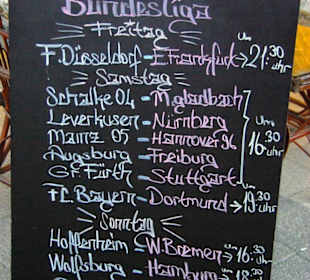 Bundesliga
Freitag
F. Düsseldorf - E Frankfurt → um 21:30 uhr
Samstag
Schalke 04 - M'gladbach
Leverkusen - Nürnberg
Mainz 05 - Hannover 96
Augsburg - Freiburg
Gr. Fürth - Stuttgart
um 16:30 uhr
FC. Bayern - Dortmund → um 19:30 uhr
Sonntag
Hoffenheim - W. Bremen → um 16:30
Wolfsburg - Hamburg → 18:30